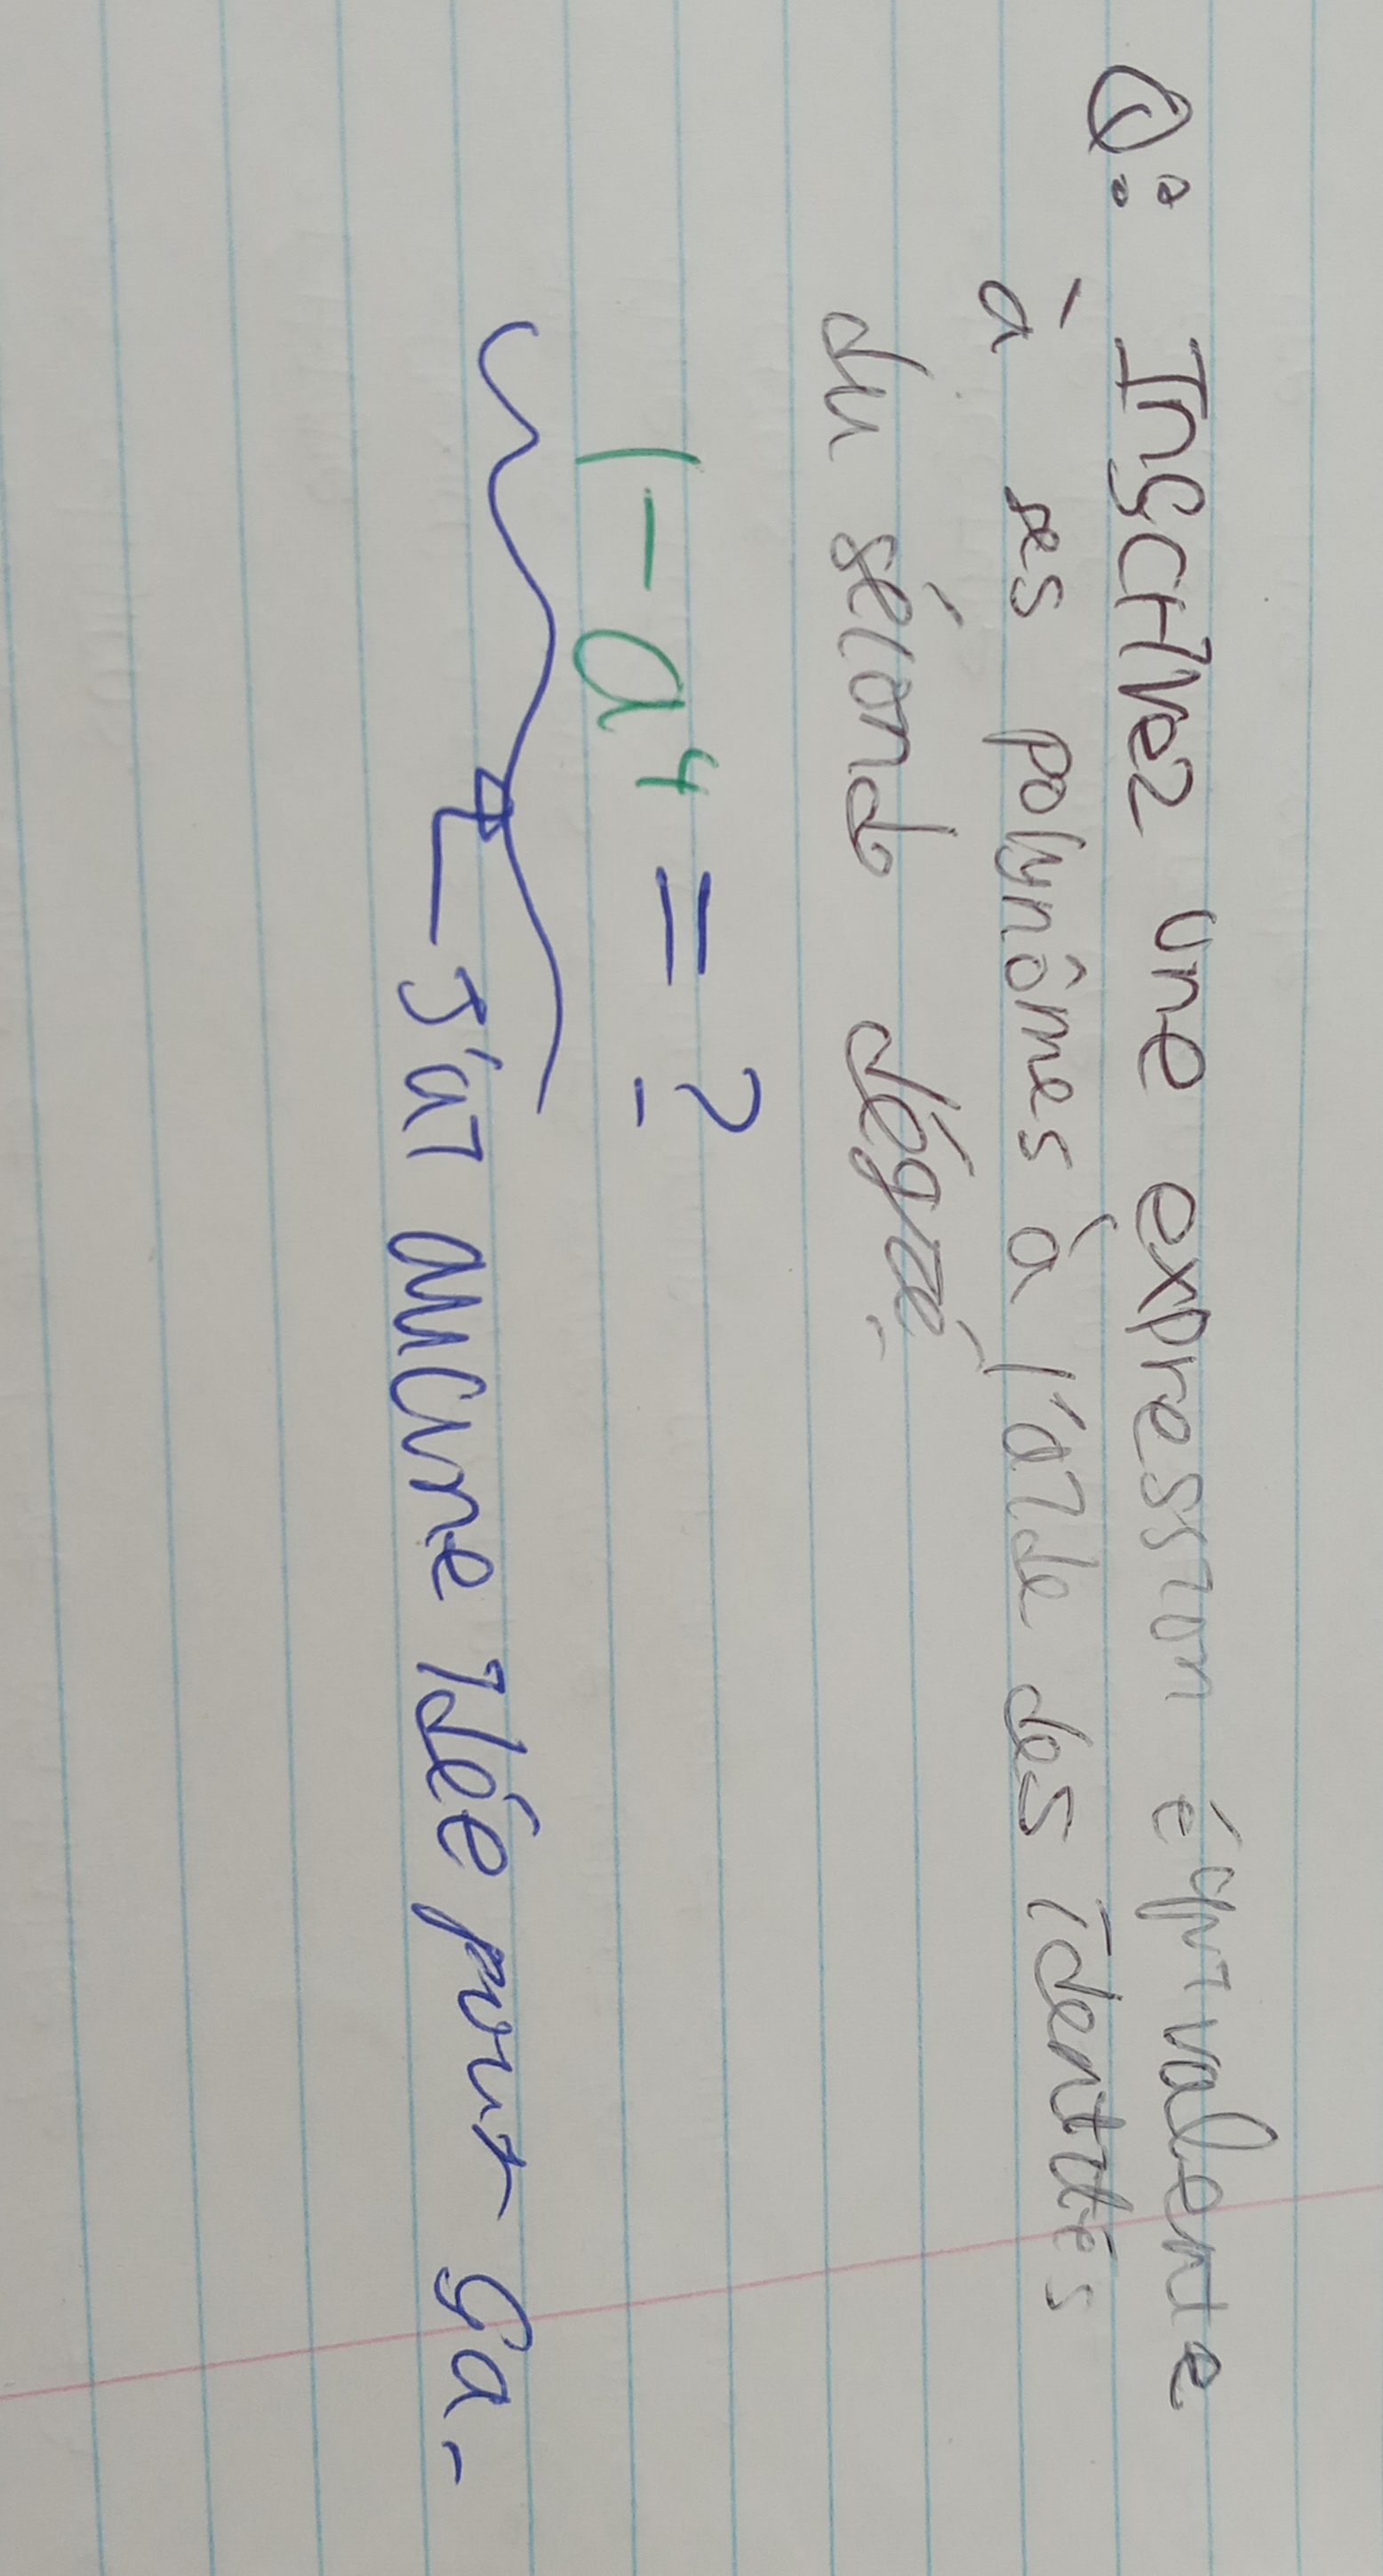 Q: Inscrivez une expression équivalente
à ses polynômes à l'aide des identités
du sécond dégré.
1 - a⁴ = ?
J'ai aucune idée pour ça.